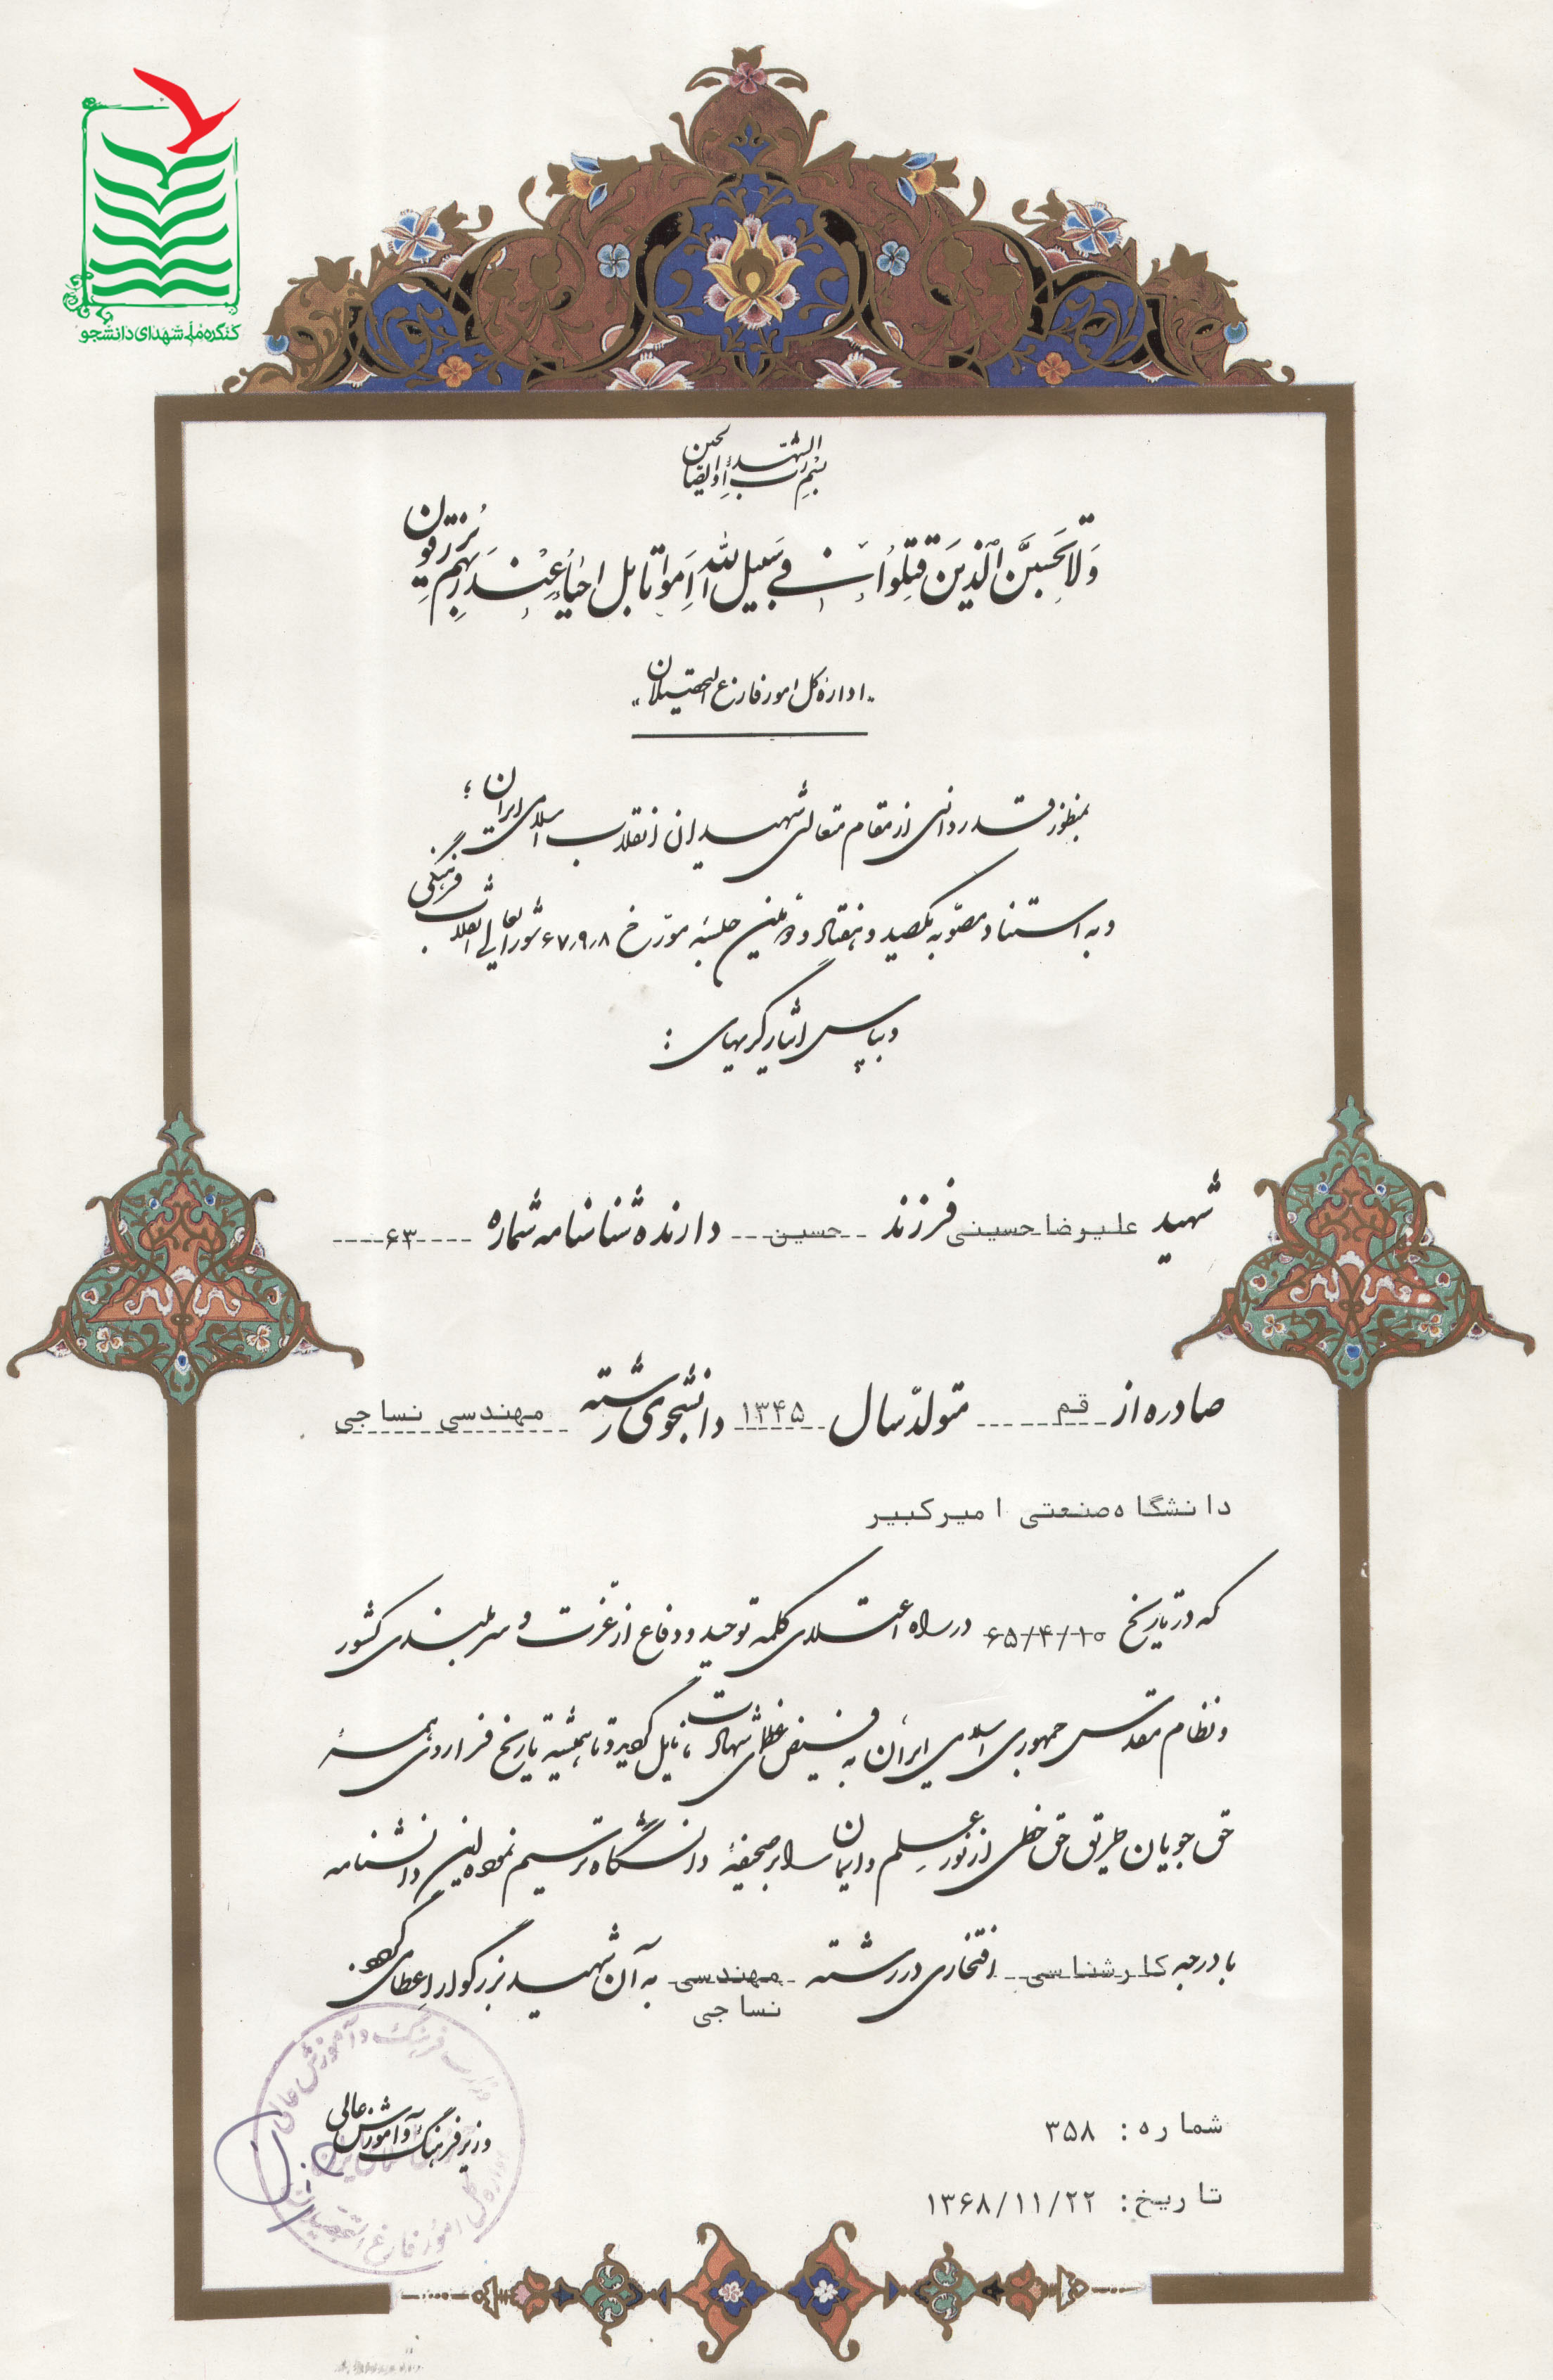 کنگره ملی شهدای دانشجو
بسم رب الشهداء و الصالحین
وَلا تَحسَبَنَّ الَّذینَ قُتِلُوا فی سَبیلِ اللهِ اَمواتا بَل اَحیاءٌ عِندَ رَبِّهِم یُرزَقون
"اداره کل امور فارغ التحصیلان"
بمنظور قدردانی از مقام متعالی شهیدان انقلاب اسلامی ایران؛
و به استناد مصوبه یکصد و هفتاد و دومین جلسه مورخ ۶۷/۹/۸ شورایعالی انقلاب فرهنگی
و بپاس ایثارگریهای :
شهید علیرضا حسینی فرزند حسین دارنده شناسنامه شماره ۶۳
صادره از قم متولد سال ۱۳۴۵ دانشجوی رشته مهندسی نساجی
دانشگاه صنعتی امیرکبیر
که در تاریخ ۶۵/۴/۱۰ در راه اعتلای کلمه توحید و دفاع از عزت و سربلندی کشور
و نظام مقدس جمهوری اسلامی ایران به فیض عظمای شهادت نایل گردید و تا همیشه تاریخ فرا روی همه
حق جویان طریق حق خطی از نور علم و ایمان را بر صحیفه دانشگاه ترسیم نموده این دانشنامه
با درجه کارشناسی افتخاری در رشته مهندسی نساجی به آن شهید بزرگوار اعطا می‌گردد.
شماره: ۳۵۸
تاریخ: ۱۳۶۸/۱۱/۲۲
وزیر فرهنگ و آموزش عالی
وزارت فرهنگ و آموزش عالی
اداره کل امور فارغ التحصیلان